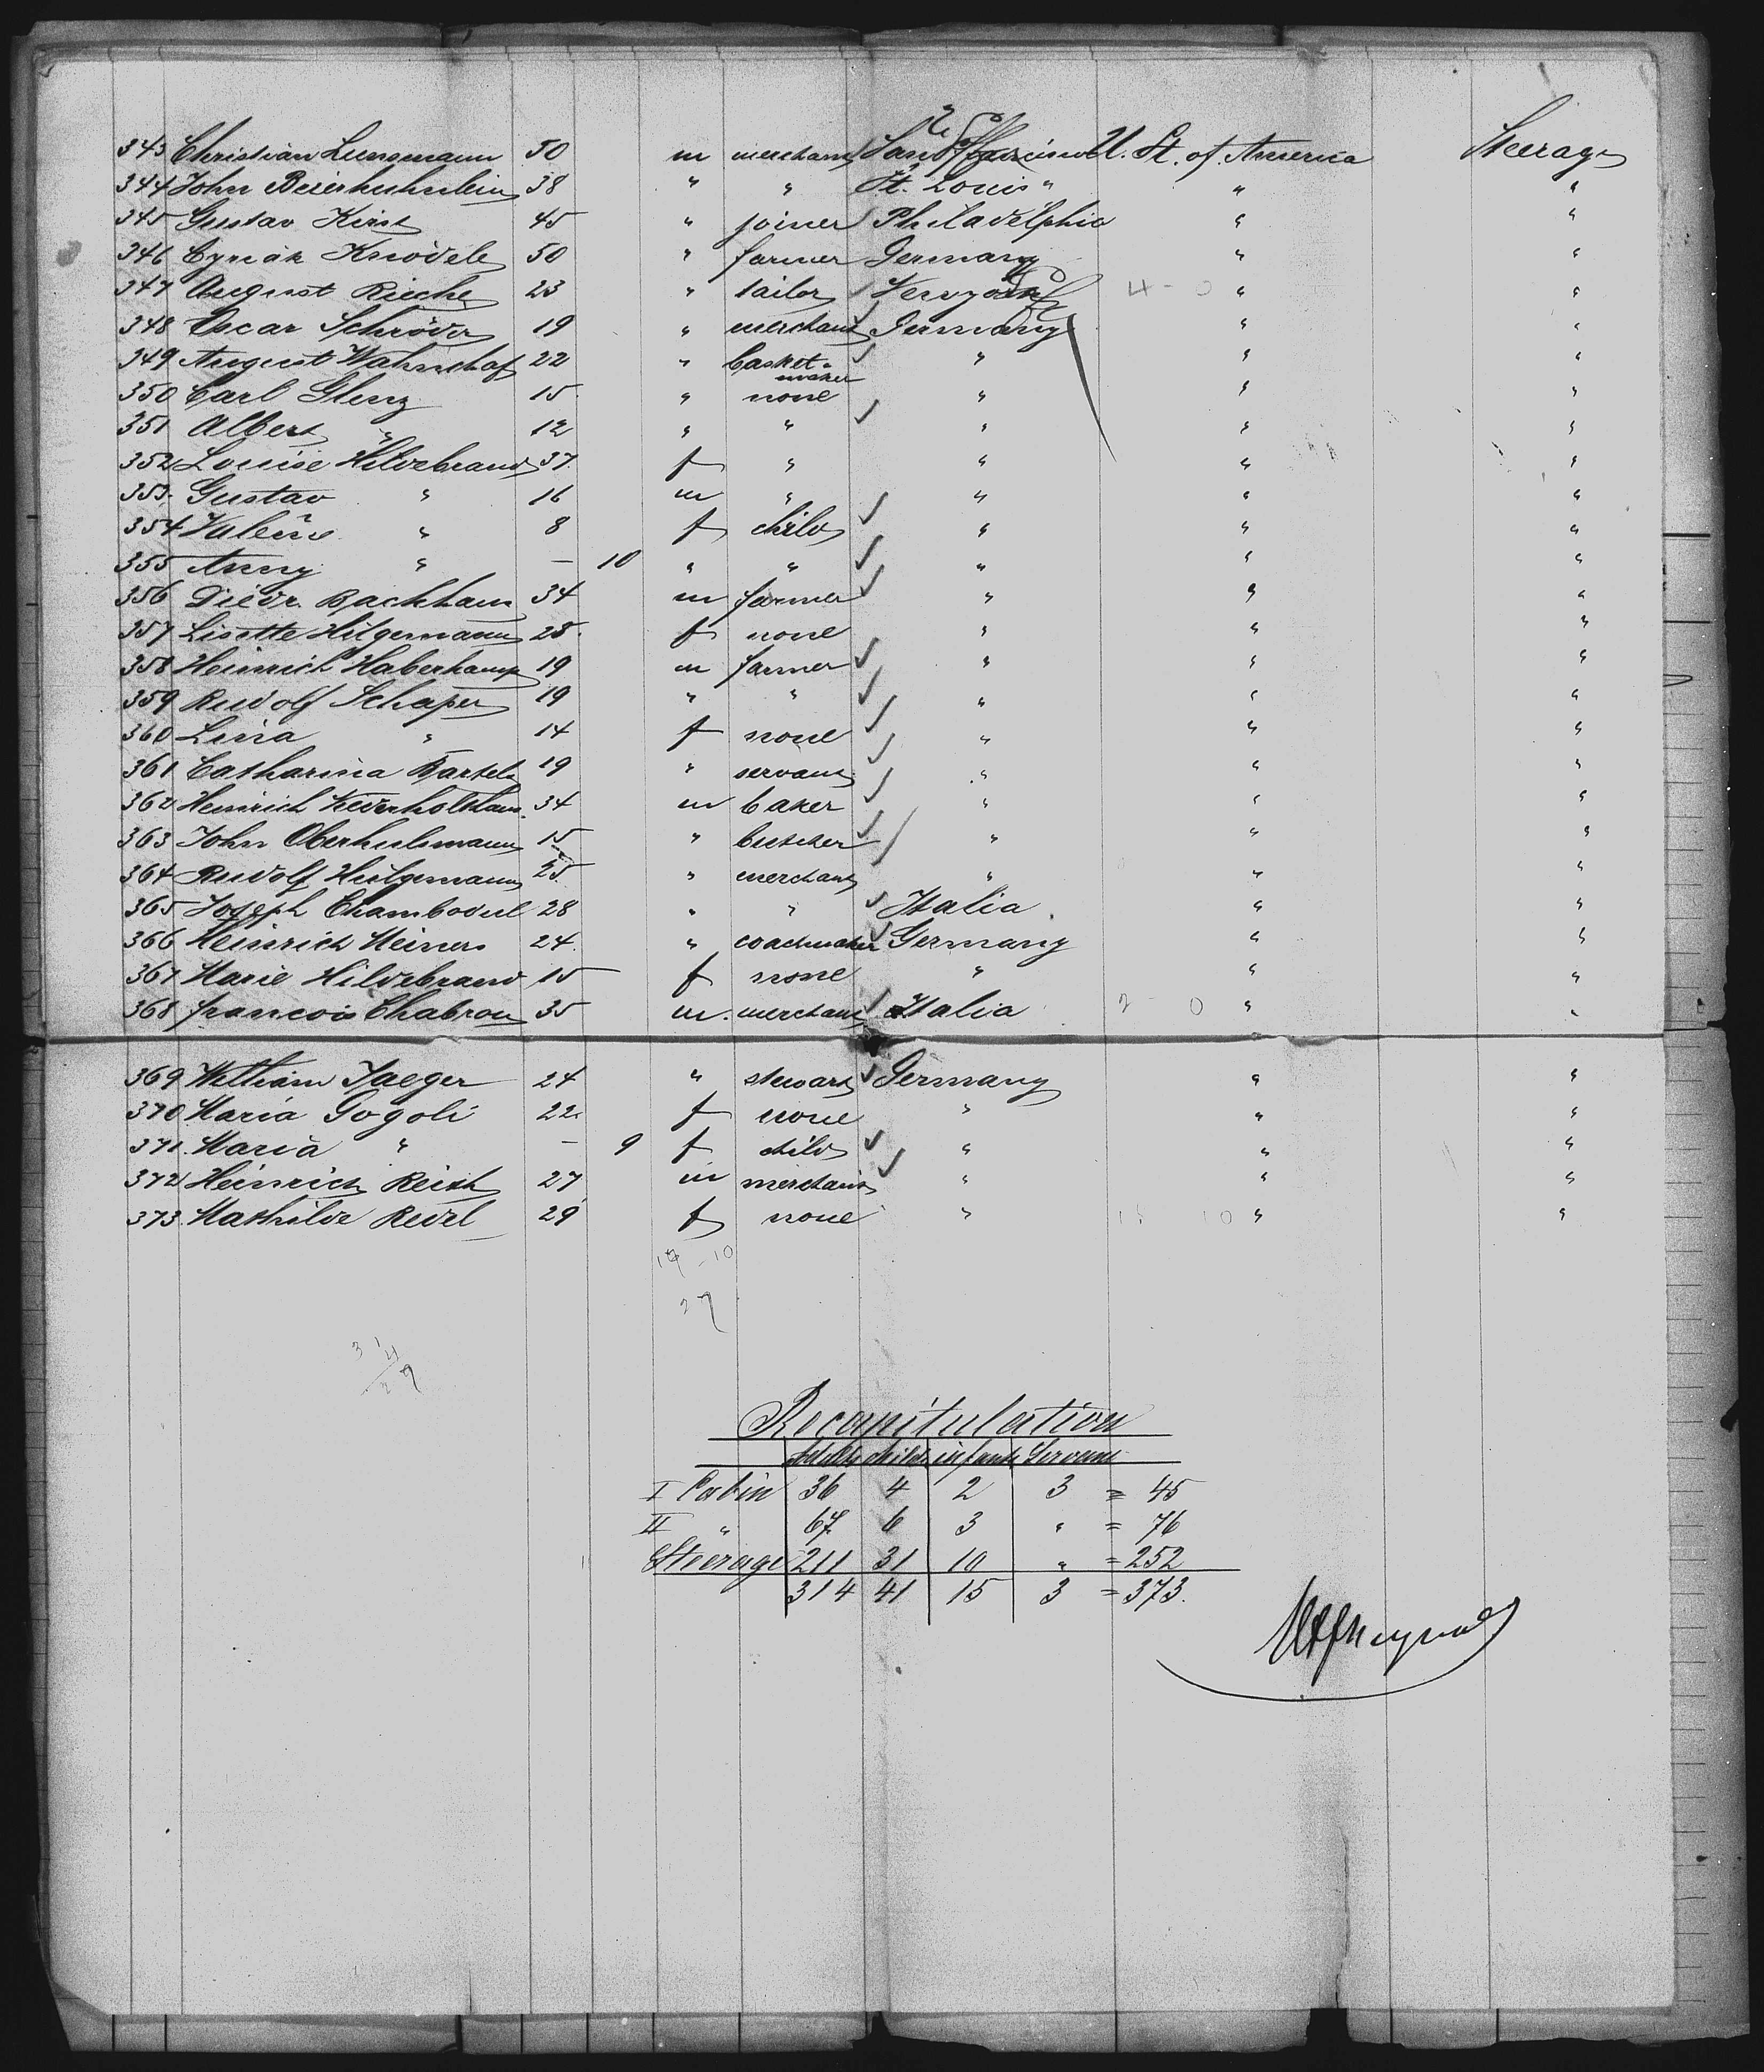 343 Christian Lunsmann 50 m merchant San Francisco U. St. of America Steerage
344 John Beierkuhnlein 38 " " St. Louis " " "
345 Gustav Kirst 45 " joiner Philadelphia " "
346 Cyriak Knödele 50 " farmer Germany " "
347 August Rieche 23 " tailor Newyork " "
348 Oscar Schröder 19 " merchant Germany " "
349 August Wahnschaf 22 " basket- " " "
maker
350 Carl Glenz 15 " none " " "
351 Albert " 12 " " " " "
352 Louise Hildebrand 37. f " " " "
353. Gustav " 16 m " " " "
354 Valeire " 8 f child " " "
355 Anny " — 10 " " " " "
356 Diedr. Backhaus 34 m farmer " " "
357 Lisette Hilgemann 28. f none " " "
358 Heinrich Haberkamp 19 m farmer " " "
359 Rudolf Schaper 19 " " " " "
360 Lina " 14 f none " " "
361 Catharina Bartels 19 " servant " " "
362 Heinrich 34 m baker " " "
363 John Oberhulsmann 15 " butcher " " "
364 Rudolf Hulgemann 25. " merchant " " "
365 Joseph Chambodul 28 " " Italia " "
366 Heinrich Meiners 24. " coachmaker Germany " "
367 Marie Hildebrand 15 f none " " "
368 francois Chabrou 35 m. merchant Italia 2 - 0 " "
369 William Jaeger 24 " stewart Germany " "
370 Maria Gogoli 22. f none " " "
371. Maria " — 9 f child " " "
372 Heinrich Reith 27 m merchant " " "
373. Mathilde Redel 29 f none " " "
17 - 10
27
314
27
Recapitulation
Adults childr. infants Servant
I Cabin 36 4 2 3 = 45
II " 67 6 3 " = 76
Steerage 211 31 10 " = 252
314 41 15 3 = 373.